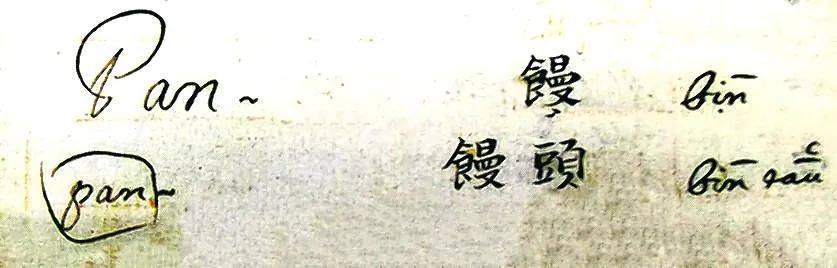 Pan~ 饅 bin̄
pan~ 饅頭 bin̄